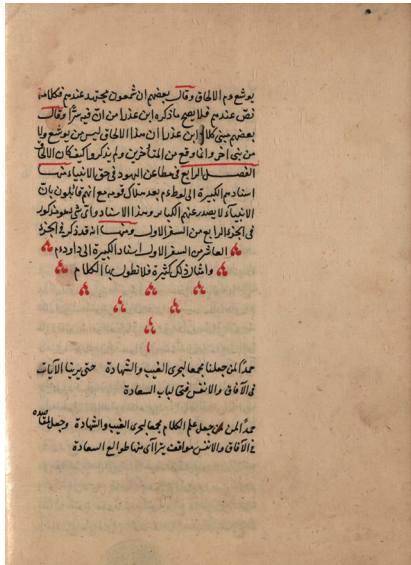 يوشع وم الالحاق وقال بعضهم ان شمعون مجتهد عندهم فكلامه
نص عندهم فلا يصح ما ذكره ابن عذرا من ان فيه سرًّا وقال
بعضهم مبنى كلام ابن عذرا ان هذا الالحاق ليس من يوشع ولا
من نبى اخر وانما وقع من المتأخرين ولم يذكروا كيف كان الالحاق
الفصل الرابع فى مطاعن اليهود فى حق الانبياء منها
اسنادهم الكبيرة الى لوط ءم بعد هلاك قومه مع انهم قائلون بان
الانبياء لا يصدر عنهم الكبائر وهذا الاسناد واى شئ هو مذكور
فى الجزء الرابع من السفر الاول ومنها انه قد ذكر فى الجزء
العاشر من السفر الاول اسناد الكبيرة الى داود ءم
وامثال ذلك كثيرة فلا نطول بها الكلام
حمدًا لمن جعلنا مجمعا لبحرى الغيب والشهادة حتى يرينا الآيات
فى الآفاق والانفس فتحًا لباب السعادة
حمدًا لمن جعل علم الكلام مجمعا لبحرى الغيب والشهادة وجعل مقاصده
فى الآفاق والانفس مواقف يتراآى منها طوالع السعادة